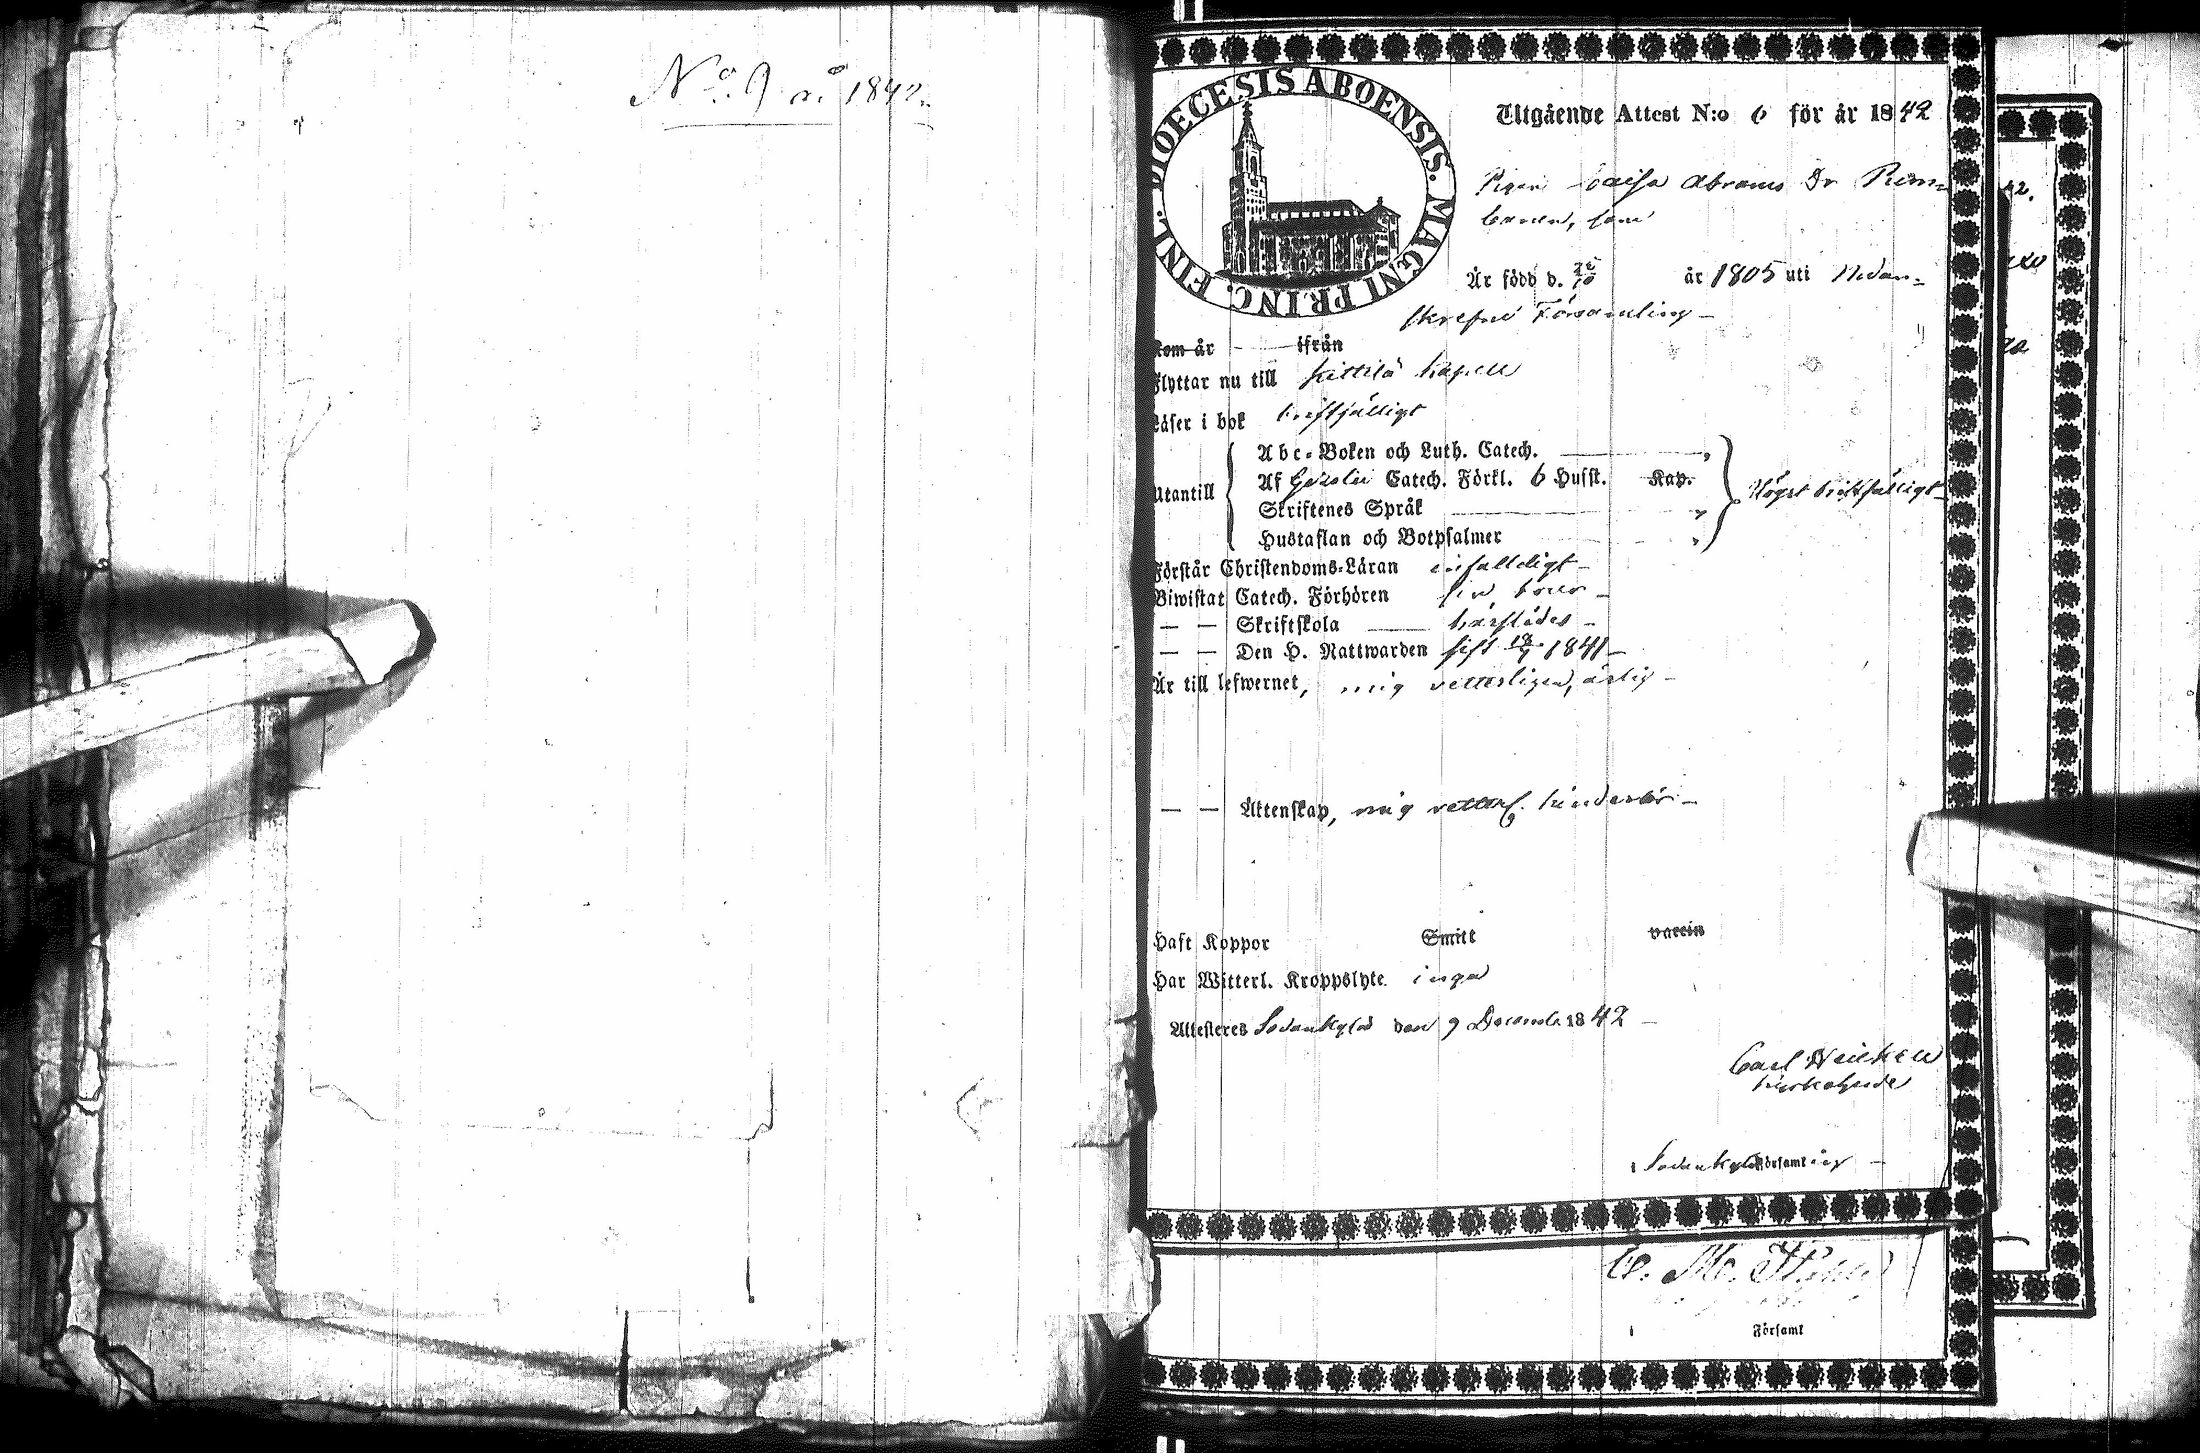 No. 9 a. 1842.
DIOECESIS ABOENSIS. MAGNI PRINC. FINL.
Utgående Attest N:o 6 för år 1842
Pigan Caisa Abrams Dr Rim=
, som
Är född d. 25/10 år 1805 uti Nedan=
skrefne Församling —
Kom år — ifrån
Flyttar nu till Kittilä Kapell
Läser i bok bristfälligt
Utantill
Abc-Boken och Luth. Catech.
Af Catech. Förkl. 6 Hufst. Kap.
Högst bristfälligt
Skriftenes Språk
Hustaflan och Botpsalmer
Förstår Christendoms-Läran enfalldigt —
Biwistat Catech. Förhören —
— — Skriftskola — härstädes —
— — Den H. Nattwarden sist 18/7 1841 —
Är till lefwernet, mig vetterligen, ärlig —
— — Äktenskap, mig vetterl. hinderlös —
Haft Koppor Smitt varein
Har Witterl. Kroppslyte inga
Attesteres Sodankylä den 9 Decemb. 1842 —
Carl Heickell
Kyrkoherde
i Sodankylä Församling —
C. M.
i Församl